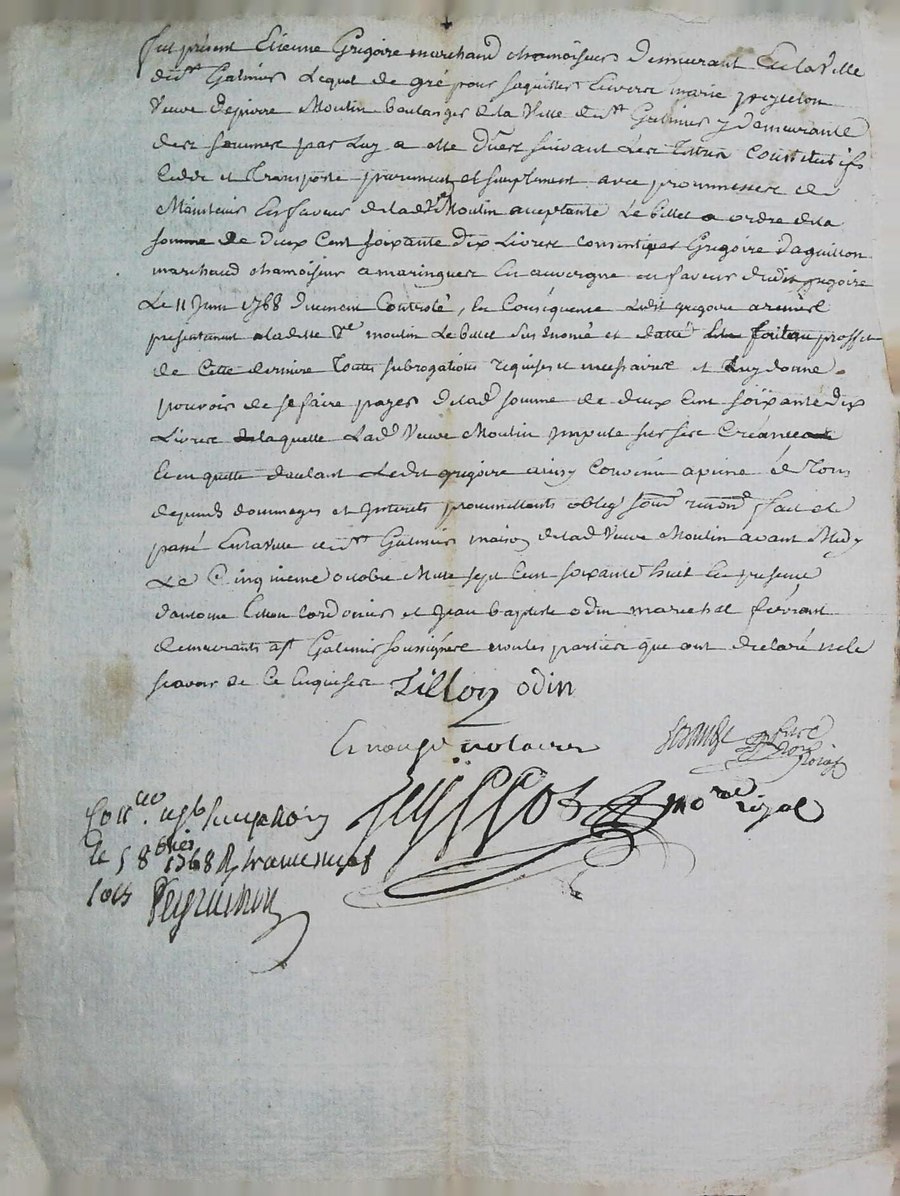 fut présent Etienne Grégoire marchand chamoiseur demeurant En la Ville
de St Galmier Lequel de gré pour saquitter Envers marie peytelon
Veuve depierre Moulin boulanger de la Ville de St Galmier y demeurante
des sommes par Luy a elle düer suivant Les Titres Constitutifs
Cedde et Transporte purement et simplement avec proummesse de
Maintenir En faveur de lad Ve Moulin acceptante Le billet a ordre de la
somme de deux Cent soixante dix Livres consenti par Grégoire daguillon
marchand chamoiseur a maringues En auvergne en faveur dudit gregoire
Le 11 Juin 1768 duement Controlé, En Conséquence Ledit gregoire a remis
présentement a ladette Ve moulin Le billet susénoncé et datté proffit
de Cette derniere Toutes subrogations requises et nessaires et Luy donne
pouvoir de se faire payer de lad somme de deux Cent soixante dix
Livres laquelle Lad Veuve Moulin impute sur ses Creances
Et en quitte dautant Ledit gregoire ainsy Convenu a peine de Tous
depends dommages et Interets proumettants oblig soum renonc fait et
passé En la Ville de St Galmier maison de lad Veuve Moulin avant Midy
Le Cinquieme octobre Mille sept Cent soixante huit En presence
dantoine Cordonier et Jean baptiste odin marechal ferrant
demeurants a St Galmier soussignés non les parties que ont declaré ne le
scavoir de Ce Enquises Tillon odin
notaire
Con au
Le 5 8bre 1768
royal